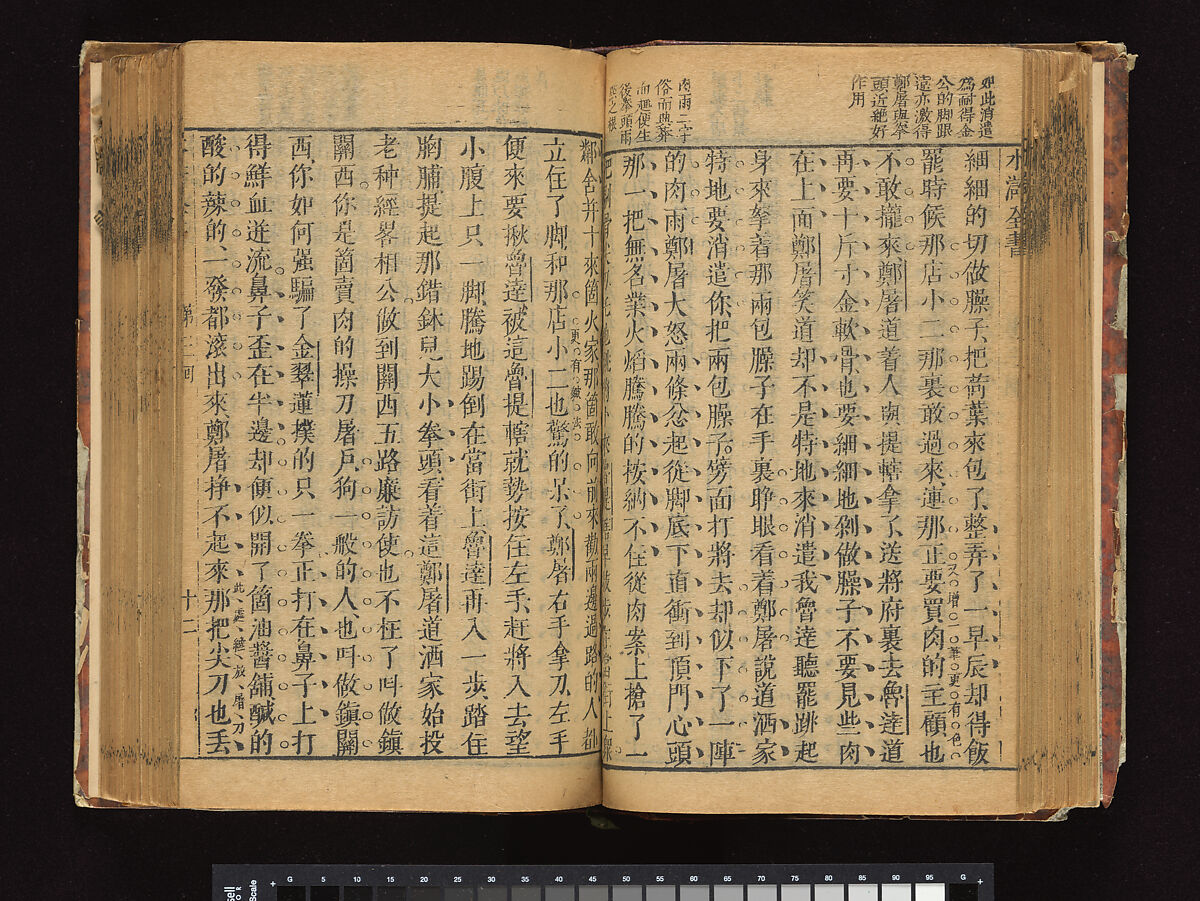 水滸全書
如此消遣
為耐得金
公的脚眼
遠亦激得
鄭屠與拳
頭近絶好
作用
細細的切做臊子、把荷葉來包了、整弄了一早辰却得飯
罷時候那店小二那裏敢過來、連那正要買肉的主顧也
又增一筆更有色
不敢攏來、鄭屠道着人與提轄拿了、送將府裏去魯達道
再要十斤寸金軟骨、也要細細地剁做臊子不要見些肉
在上面鄭屠笑道却不是特地來消遣我魯達聽罷跳起
身來拏着那兩包臊子在手裏睁眼看着鄭屠說道洒家
特地要消遣你、把兩包臊子、劈面打將去却似下了一陣
的肉雨鄭屠大怒兩條忿起從脚底下直衝到頂門心頭
那一把無名業火熖騰騰的按納不住從肉案上搶了一
肉雨二字
俗而典莽
而趣便生
後拳頭雨
鄰舍并十來箇火家那箇敢向前來勸兩邊過路的人都
立住了脚、和那店小二也驚的呆了、鄭屠右手拿刀、左手
更有緻法
便來要揪魯達被這魯提轄就勢按住左手、赶將入去望
小腹上只一脚、騰地踢倒在當街上、魯達再入一步、踏住
胸脯提起那錯鉢兒大小拳頭、看着這鄭屠道洒家始投
老种經畧相公做到關西五路廉訪使也不枉了叫做鎮
關西你是箇賣肉的操刀屠戶、狗一般的人、也叫做鎮關
西、你如何强騙了金翠蓮撲的只一拳正打在鼻子上打
得鮮血迸流鼻子歪在半邊却便似開了箇油醬舖鹹的
酸的辣的、一發都滾出來、鄭屠挣不起來那把尖刀也丢
此處纔放屠刀
第三回
十二